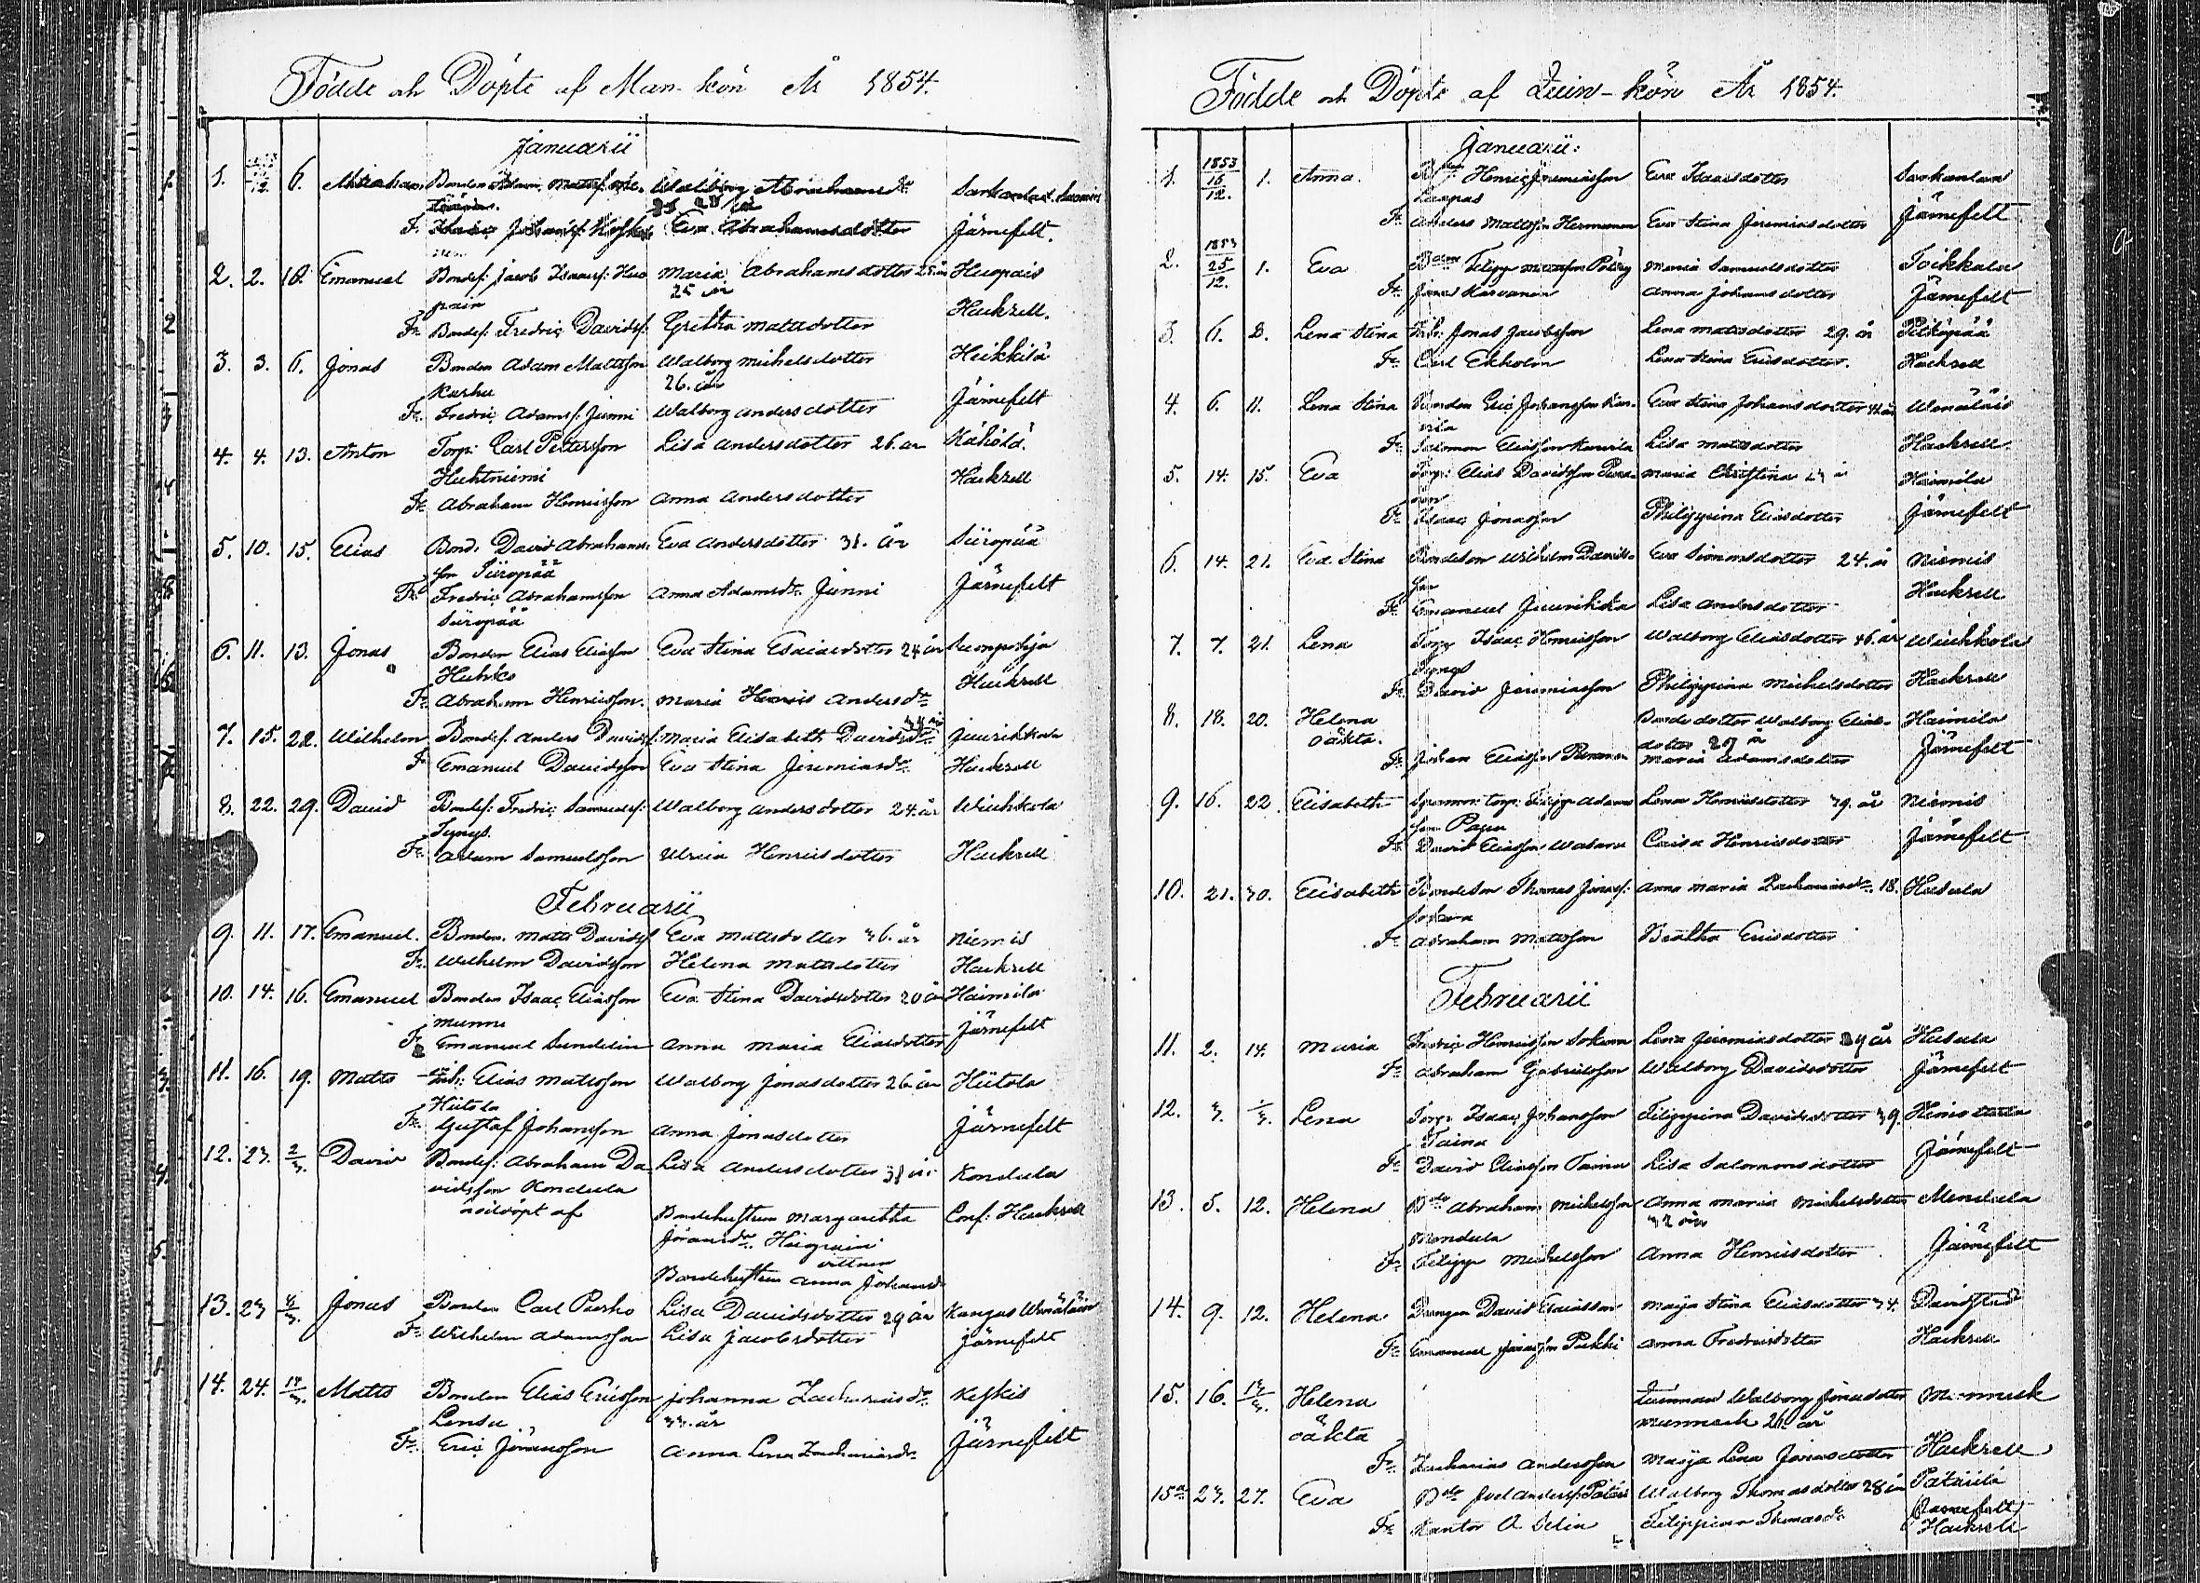 Födde och Döpte af Man-kön År 1854.
Januarii
1. 12. 6. Abraham Bonden Adam Walborg Abrahamsdr
Fr. Eva Abrahamsdotter Järnefelt.
2. 2. 16. Emanuel Bondes: Jacob Isaacs: Huo Maria Abrahamsdotter 25 år Huopais
pain 25 år
Fr. Bondes: Fredric Davids: Gretha Matsdotter Hackzell.
3. 3. 6. Jonas Bonden Adam Mattsson Walborg Michelsdotter Heikkilä
Karhu 26. år
Fr. Fredric Adams: Junni Walborg Andersdotter Järnefelt
4. 4. 13. Anton Torp: Carl Pettersson Lisa Andersdotter 26. år Kähölä.
Huhtniemi Hackzell
Fr. Abraham Henricsson Anna Andersdotter
5. 10. 15. Elias Bond: David Abrahams Eva Andersdotter 31. år Siiropää
son Siiropää
Fr. Fredric Abrahamsson Anna Adamsdr. Junni Järnefelt
Siiropää
6. 11. 13. Jonas Bonden Elias Eliasson Eva Stina Esaiaedotter 24 år Suonpohja
Huhko Hackzell
Fr. Abraham Henricsson. Maria Andersdr
7. 15. 22. Wilhelm Bondes: Anders Davids: Maria Elisabeth Davidsdr Juurikkala
Fr. Emanuel Davidsson Eva Stina Jeremiasdr. Hackzell
8. 22. 29. David Bondes: Fredric Samuels: Walborg Andersdotter 24. år Wiuhkola
Tynys.
Fr. Adam Samuelsson Ulrica Henricsdotter Hackzell
Februarii
9. 11. 17. Emanuel. Bonden. Matts Davids: Eva Mattsdotter 36. år Niemis
Fr. Wilhelm Davidsson Helena Matsdotter Hackzell
10. 14. 16. Emanuel Bonden Isaac Eliasson Eva Stina Davidsdotter 20 år Haimila
Munne
Fr. Emanuel Sundelin Anna Maria Eliaedotter Järnefelt
11. 16. 19. Matts Inh: Elias Mattsson Walborg Jonasdotter 26 år Hiitola
Hiitola
Fr. Gustaf Johansson Anna Jonasdotter Järnefelt
12. 23. 2/3. David Bondes: Abraham Da- Lisa Andersdotter 31 år Kondula
vidsson Kondula
nöddöpt af Bondehustrun Margaretha Conf: Hackzell
Jöransdr.
vittnen
Bondehustrun Anna Johansdr
13. 23 Jonas Bonden Carl Lisa Davidsdotter 29 år Kangas
Fr. Wilhelm Adamsson Lisa Jacobsdotter Järnefelt
14. 24. 14/3. Matts Bonden Elias Ericsson Johanna Zachariasdr. Keskis
Lensu 33. år
Fr. Eric Jöransson Anna Lena Zachariasdr. Järnefelt
Födde och Döpte af Quin-kön År 1854.
Januarii:
1. 1853 16/12. 1. Anna. Henric Jeremiasson Eva Isaacsdotter Sarkanlax
Laapas
Fr. Anders Mattsson Hermanen Eva Stina Jeremiasdotter Järnefelt
2. 1853 25/12. 1. Eva Bdn Filipp Mattsson Maria Samuelsdotter Toikkala
Fr. Jonas Karvanen Anna Johansdotter Järnefelt
3. 6. 8. Lena Stina Inh: Jonas Jacobsson Lena Matsdotter 29. år Pitkäpää
Fr. Carl Ekholm Lena Stina Ericsdotter. Hackzell
4. 6. 11. Lena Stina Bonden Eric Johansson Eva Stina Johansdotter
Fr. Salomon Eliasson Lisa Mattsdotter Hackzell.
5. 14. 15. Eva Torp: Elias Davidsson Maria Christina Haimila
Fr. Isaac Jonasson Philippina Eliasdotter Järnefelt
6. 14. 21. Eva Stina Bondeson Wilhelm Davids- Eva Simonsdotter 24. år Niemis
son
Fr. Emanuel Juurikkka Lisa Andersdotter Hackzell
7. 7. 21. Lena Torp: Isaac Henricsson Walborg Eliasdotter 46. år Wiuhkola
Tynys
Fr. David Jeremiasson Philippina Michelsdotter Hackzell
8. 18. 20. Helena Bondedotter Walborg Elias- Haimila
oäkta. dotter 27 år
Fr. Johan Eliasson Maria Adamsdotter Järnefelt
9. 16. 22 Elisabeth torp: Filipp Adams Lena Henricsdotter 39. år Niemis
son
Fr. David Eliasson Caisa Henricsdotter Järnefelt
10. 21. 30. Elisabeth Bondeson Thomas Jonas: Anna Maria Zachariasdr. 18. Husula
Fr. Abraham Mattsson Beatha Ericsdotter
Februarii
11. 2. 14. Maria Fredric Henricsson Lena Jeremiasdotter 39 år Husula
Fr. Abraham Gabrielsson Walborg Davidsdotter Järnefelt
12. 3. Lena Torp: Isaac Johansson Filippina Davidsdotter 39.
Taina
Fr. David Eliasson Taina Lisa Salomonsdotter Järnefelt
13. 5. 12. Helena Bdn Abraham Michelsson Anna Maria Michelsdotter Mendula
Mendula 32 år
Fr. Filipp Michelsson Anna Henricsdotter Järnefelt
14. 9. 12. Helena Drengen David Esaiasson Maija Stina Eliasdotter 34. Davidstad
Fr. Emanuel Pukki Anna Fredricsdotter Hackzell
15. 16. 13/3. Helena Quinnan Walborg Jonasdotter
oäkta 26 år
Fr. Zacharias Andersson Maija Lena Jonasdotter Hackzell
15a 23. 27. Eva Bdn Joel Anders: Walborg Thomasdotter 28 år
Fr. Kantor A Delin Filippina Thomasdr (Järnefelt)
Hackzell